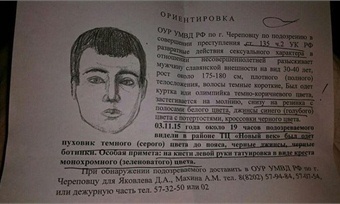 ОРИЕНТИРОВКА
ОУР УМВД РФ по г. Череповцу по подозрению в
совершении преступления ст. 135 ч.2 УК РФ
развратные действия сексуального характера в
отношении несовершеннолетней разыскивает
мужчину славянской внешности на вид 30-40 лет,
рост около 175-180 см, плотного (полного)
телосложения, волосы темные короткие, Был одет
куртка как олимпийка темно-коричневого цвета,
застегивается на молнию, снизу на резинке с
полосами белого цвета, джинсы синего (голубого)
цвета с потертостями, кроссовки черного цвета.
03.11.15 около 19 часов подозреваемого
видели в районе ТЦ «Новый век» был одет
пуховик темного (серого) цвета до пояса, черные джинсы, черные
ботинки. Особая примета: на кисти левой руки татуировка в виде креста
монохромного (зеленоватого) цвета.
При обнаружении подозреваемого доставить в ОУР УМВД РФ по г.
Череповцу для Яковлева Д.А., Махина А.М. тел. 8(8202) 57-94-84,
или дежурную часть тел. 57-32-50 или 02